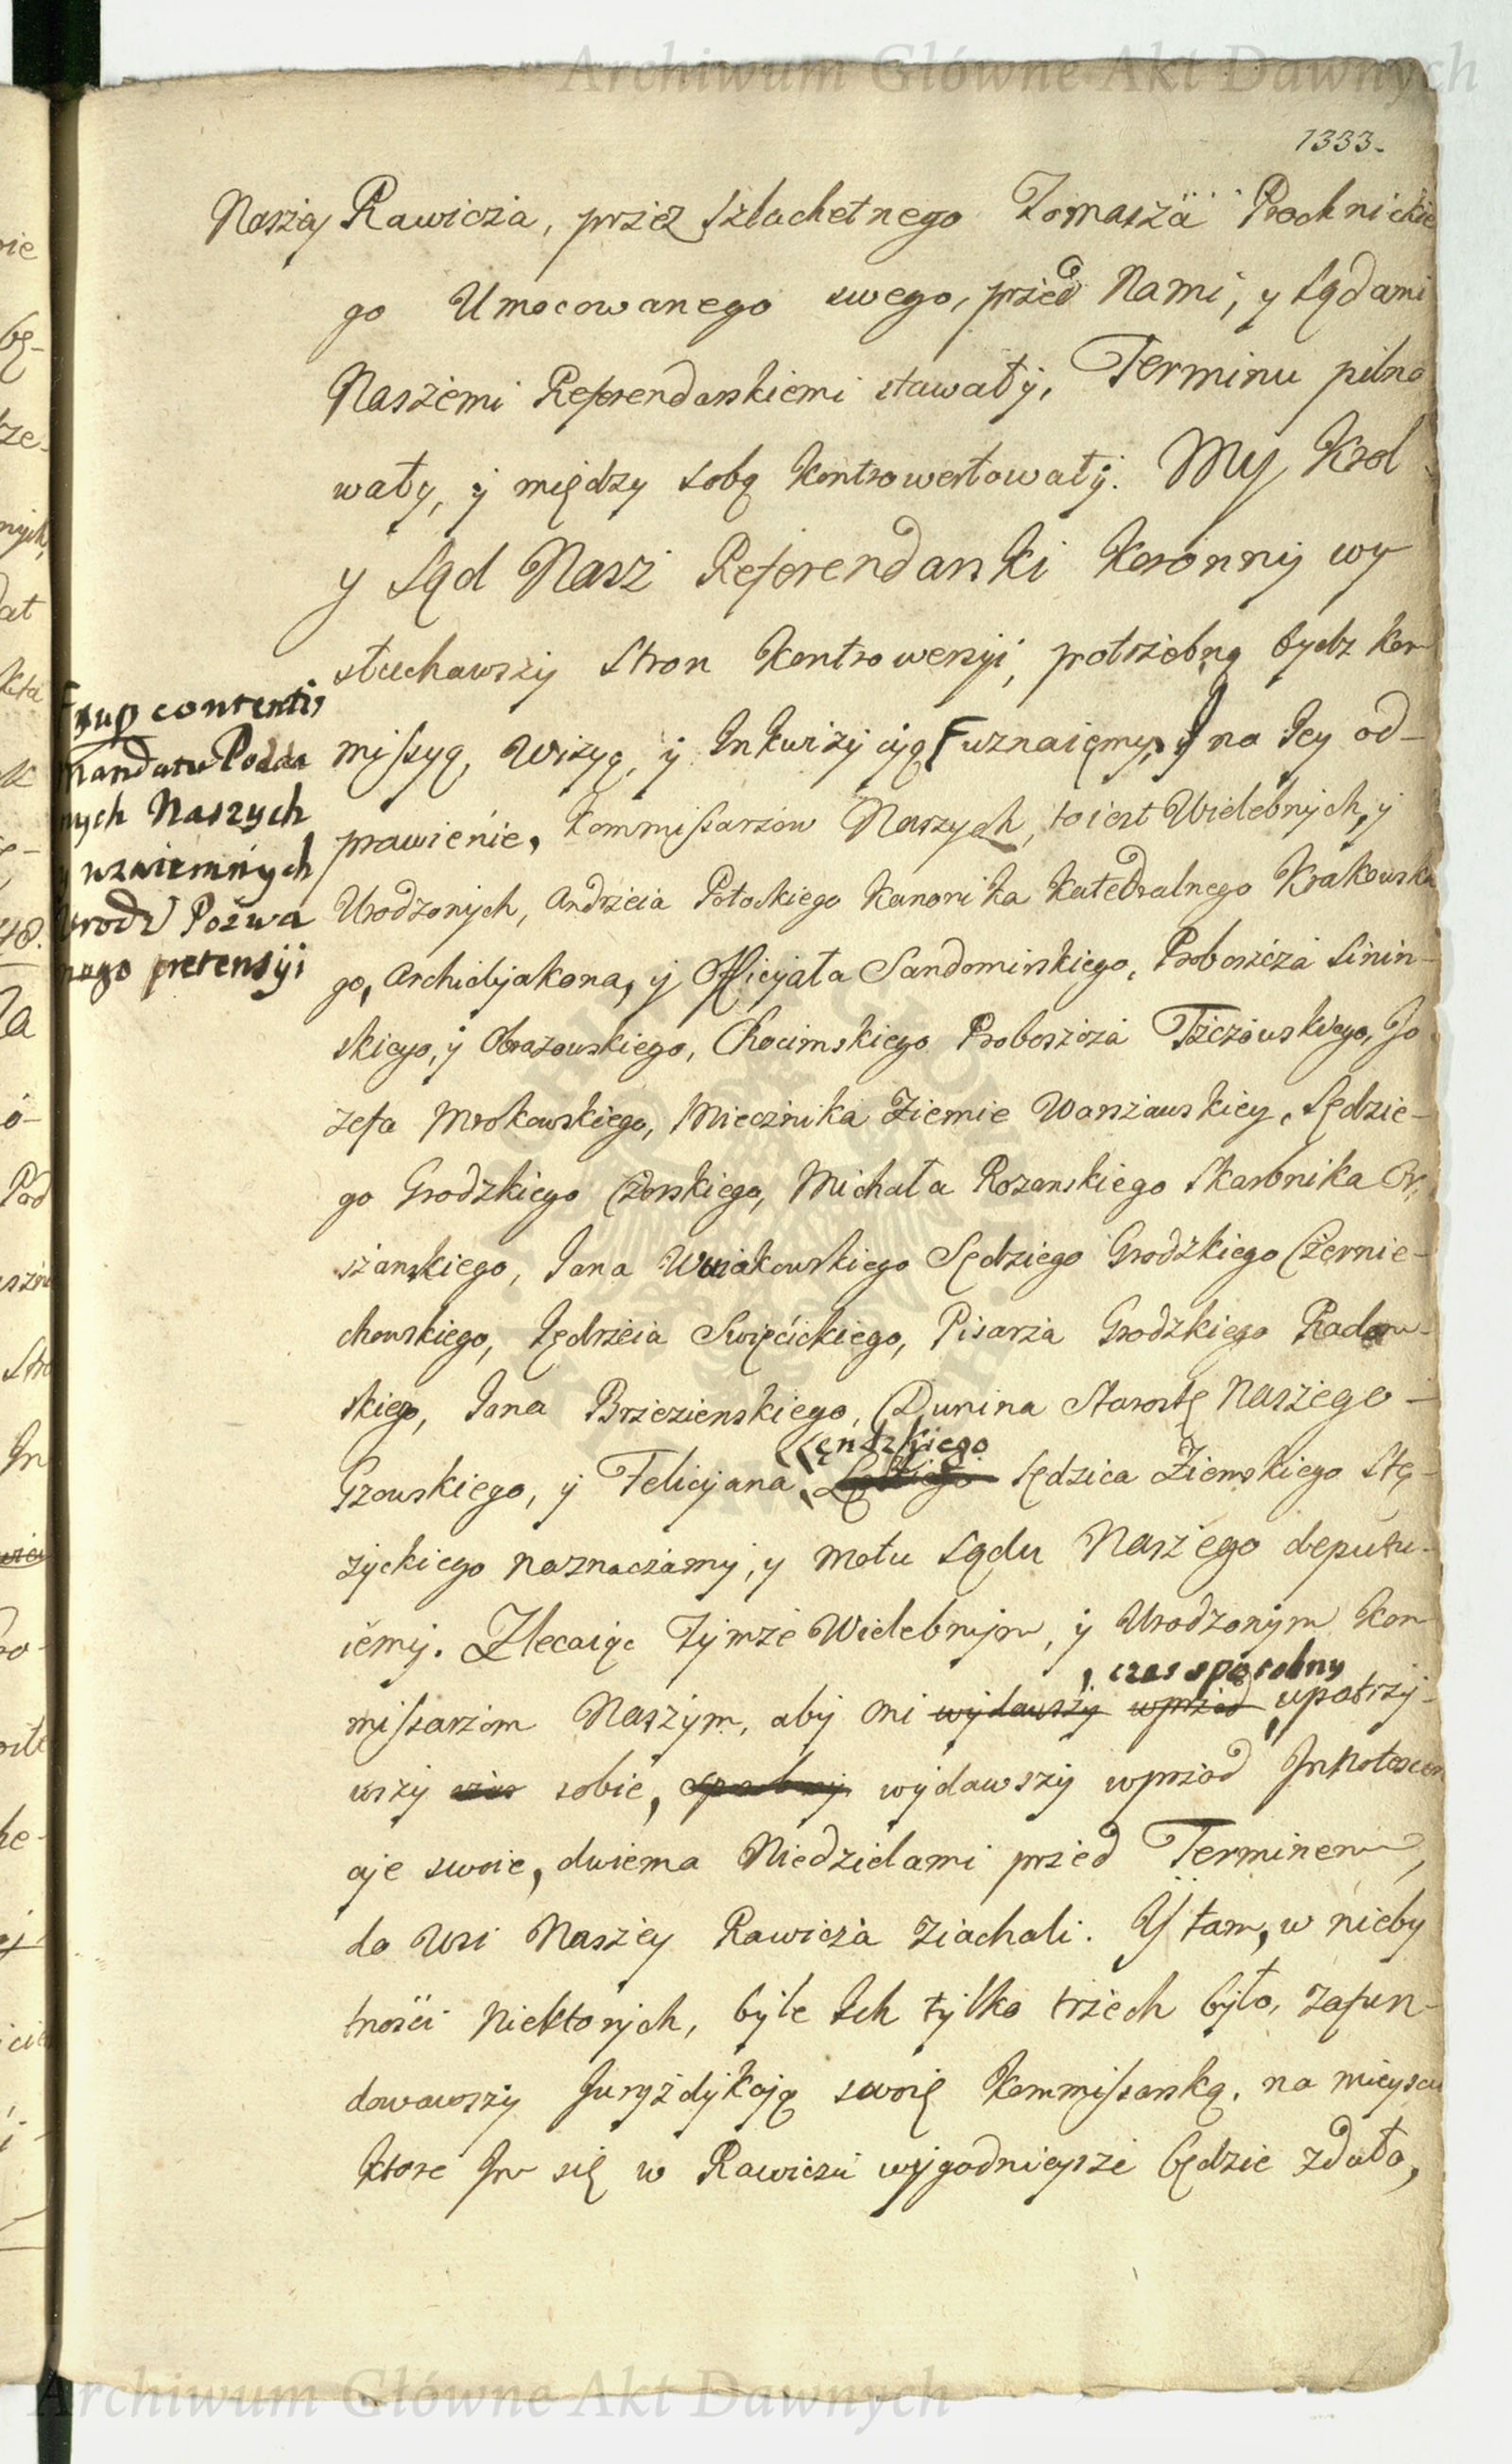 Archiwum Główne Akt Dawnych
1333.
Naszey Rawicza, przez Szlachetnego Tomasza Prochnickie
go Umocowanego swego, przed Nami, y Sądami
Naszemi Referendarskiemi stawały, Terminu pilno
wały, y między sobą kontrowertowały. My Krol
y Sąd Nasz Referendarski Koronny wy
słuchawszy Stron Kontrowersyi, potrzebną bydz kom
missyą, Wizyą, y Inkwizycyą F uznaięmy, y na Jey od-
prawienie, Kommissarzow Naszych, to iest Wielebnych, y
Urodzonych, Andrzeia Potockiego Kanonika Katedralnego Krakowskie
go, Archidyakona, y Officyała Sandomirskiego, Proboszcza Sinin-
skiego, y Obrazowskiego, Chocimskiego Proboszcza Tczowskiego, Jo
zefa Mrokowskiego, Miecznika Ziemie Warszawskiey, Sędzie-
go Grodzkiego Czerskiego, Michała Rozanskiego Skarbnika Or,
szanskiego, Jana Wniakowskiego Sędziego Grodzkiego Czernie-
chowskiego, Jędrzeia Swięcickiego, Pisarza Grodzkiego Radom-
skiego, Jana Brzezienskiego, Dunina Starostę Naszego -
Gzowskiego, y Felicyana Łęndzkiego Sędzica Ziemskiego Stę-
życkiego naznaczamy, y motu Sądu Naszego deputu-
iemy. Zlecaiąc Tymze Wielebnym, y Urodzonym Kom
missarzom Naszym, aby oni wydawszy wprzod , czas sposobny upatrzy-
wszy czas sobie, sposobny wydawszy wprzod Innotescen
cye swoie, dwiema Niedzielami przed Terminem,
do Wsi Naszey Rawicza Ziachali. Y tam, w nieby
tnosci Niektorych, byle Ich tylko trzech było, zafun-
dowawszy Juryzdykcyą swoię Kommissarską, na mieyscu
ktore Im się w Rawiczu wygodnieysze będzie zdało,
F sup contentis
mandatu Podda
nych Naszych
y wzaiemnych
Urodz Pozwa
nego pretensyi
Archiwum Główne Akt Dawnych